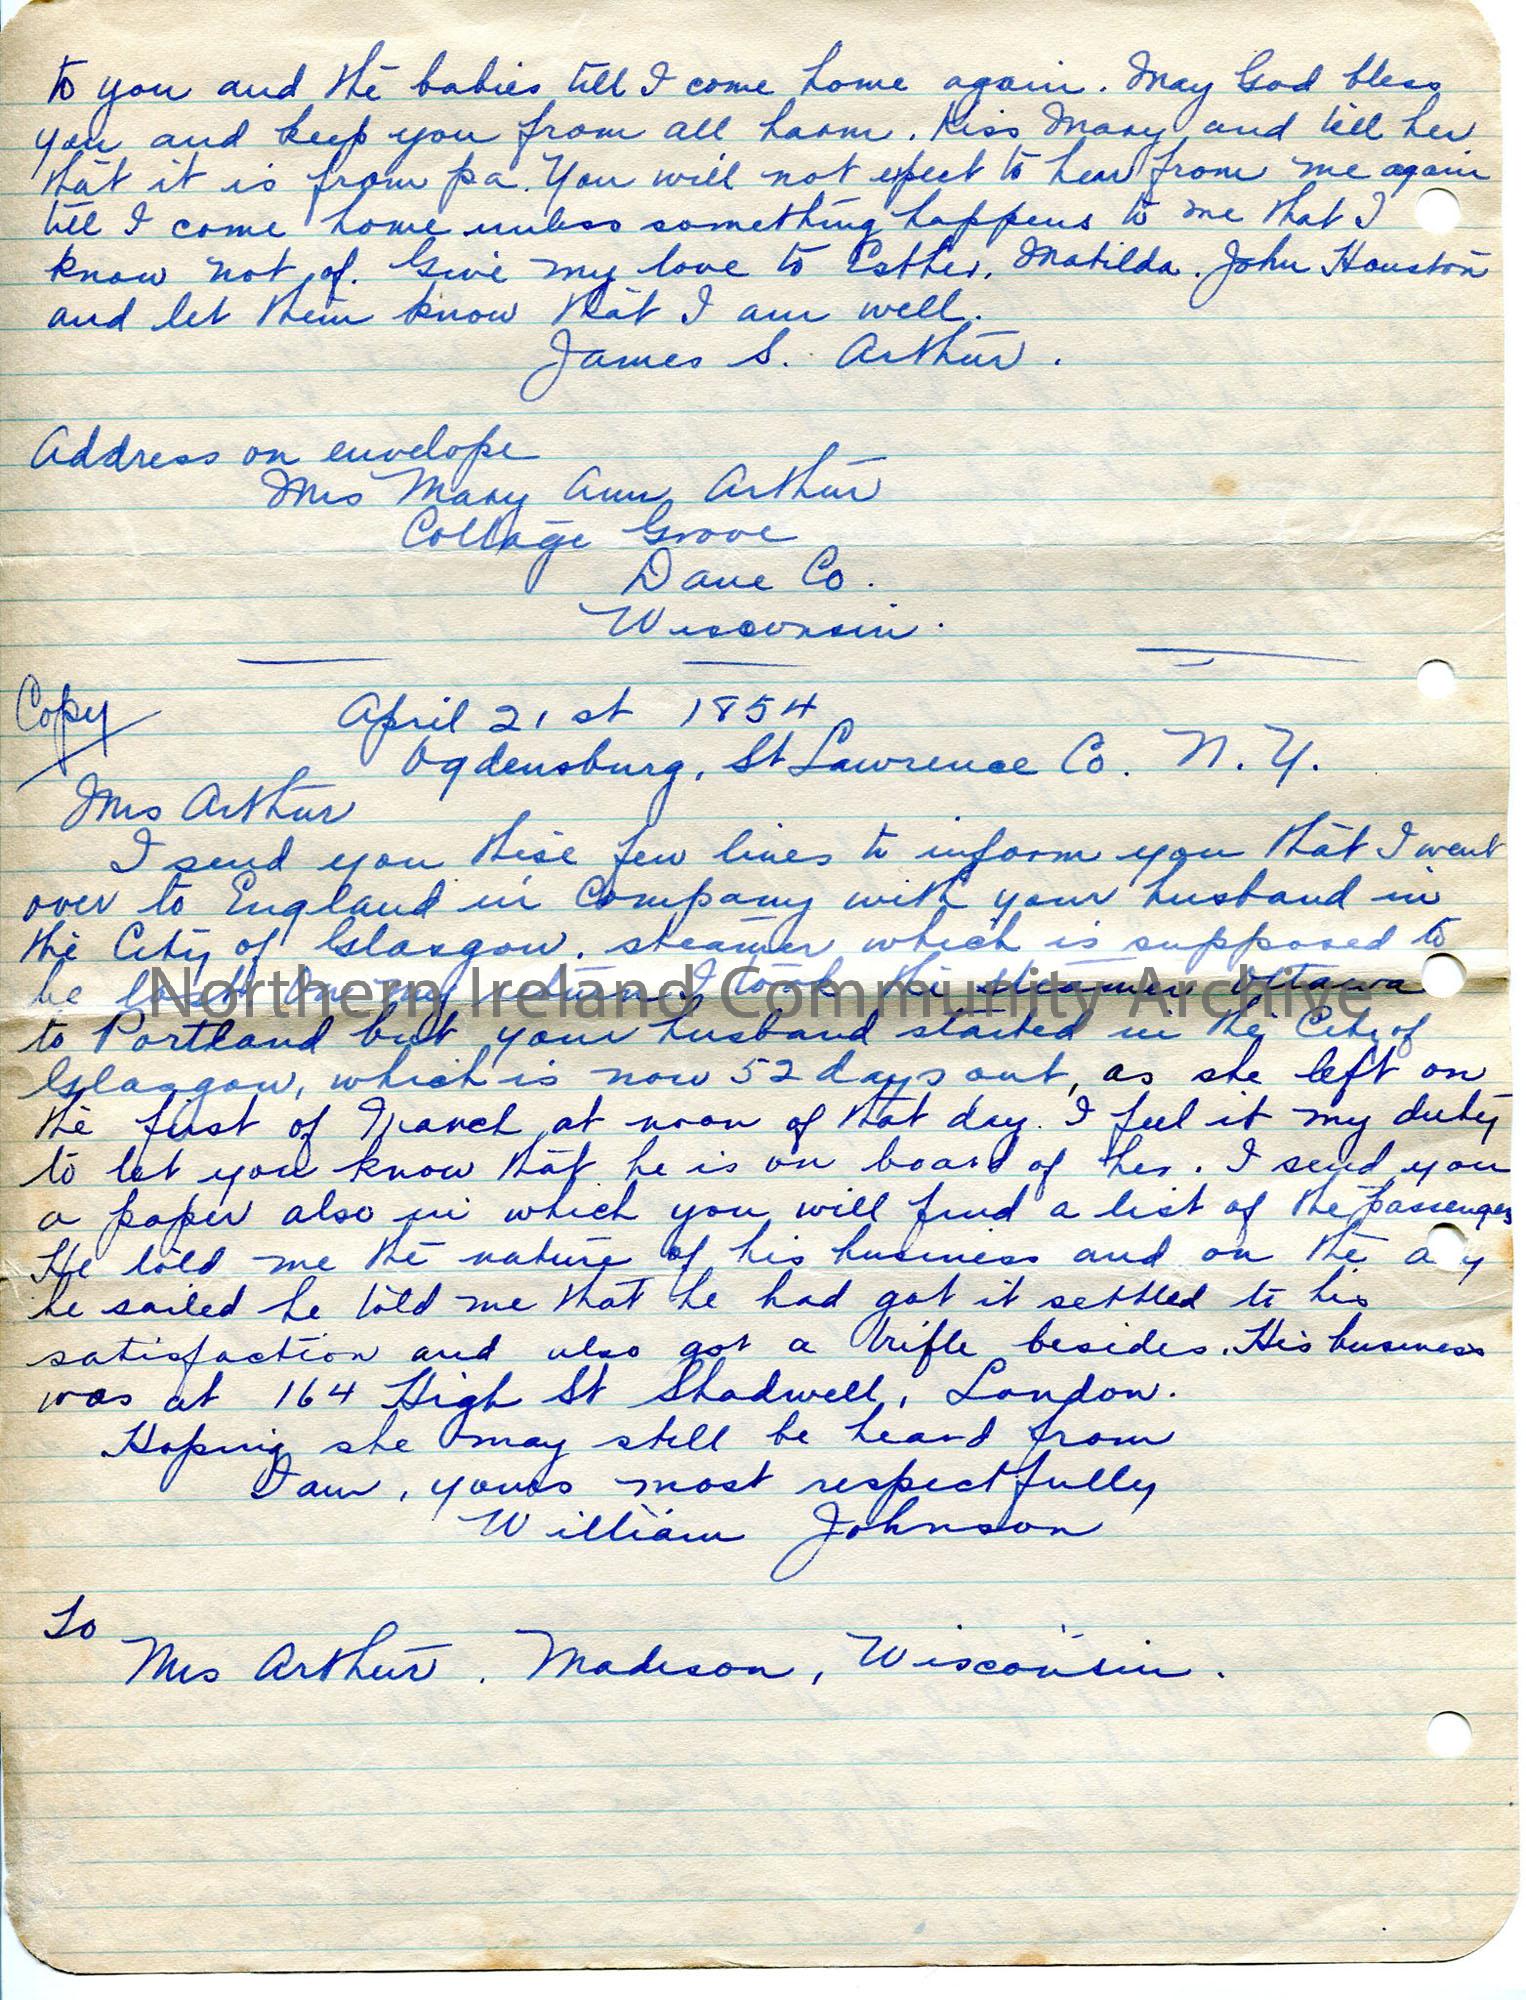 to you and the babies till I come home again. May God bless
you and keep you from all harm. Kiss Mary and tell her
that it is from pa. You will not expect to hear from me again
till I come home unless something happens to me that I
know not of. Give my love to Esther, Matilda. John Houston
and let them know that I am well.
James S. Arthur.
Address on envelope
Mrs Mary Ann Arthur
Cottage Grove
Dane Co.
Wisconsin.
Copy
April 21st 1854
Ogdensburg, St Lawrence Co. N.Y.
Mrs Arthur
I send you these few lines to inform you that I went
over to England in Company with your husband in
the City of Glasgow, steamer which is supposed to
be lost. On my return I took the steamer Ottawa
to Portland but your husband started in the City of
Glasgow, which is now 52 days out, as she left on
the first of March at noon of that day. I feel it my duty
to let you know that he is on board of her. I send you
a paper also in which you will find a list of the passengers
He told me the nature of his business and on the day
he sailed he told me that he had got it settled to his
satisfaction and also got a trifle besides. His business
was at 164 High St Shadwell, London.
Hoping she may still be heard from
I am, yours most respectfully
William Johnson
To
Mrs Arthur. Madison, Wisconsin.
Northern Ireland Community Archive